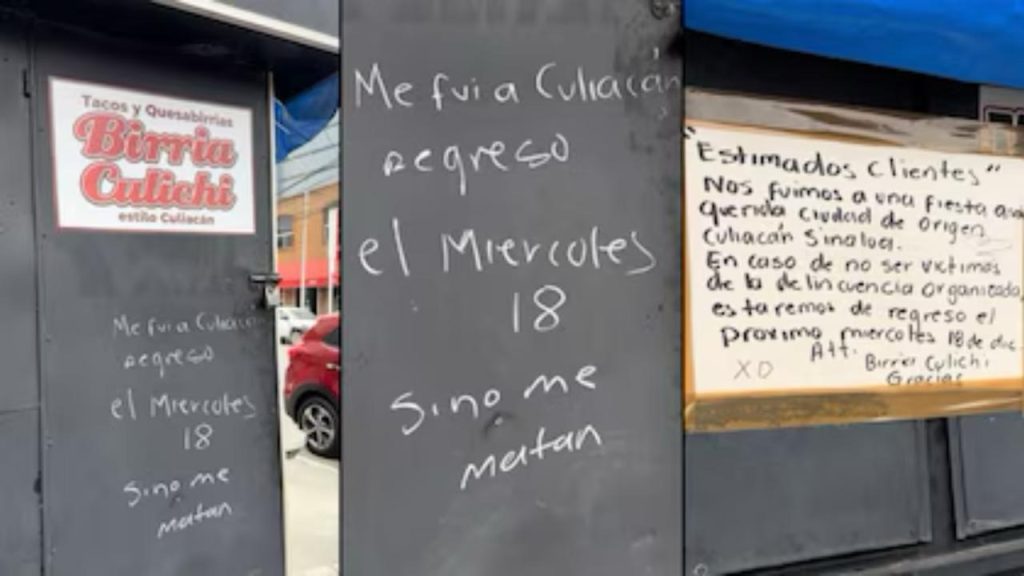 Tacos y Quesabirrias
Birria
Culichi
estilo Culiacán
Me fui a Culiacán
regreso
el Miercoles
18
sino me
matan
Me fui a Culiacán
regreso
el Miercoles
18
sino me
matan
"Estimados Clientes"
Nos fuimos a una fiesta a
querida ciudad de origen
Culiacán Sinaloa.
En caso de no ser victimas
de la delincuencia organizada
estaremos de regreso el
proximo miercoles 18 de dic
Att.
Birria Culichi
XO
Gracias